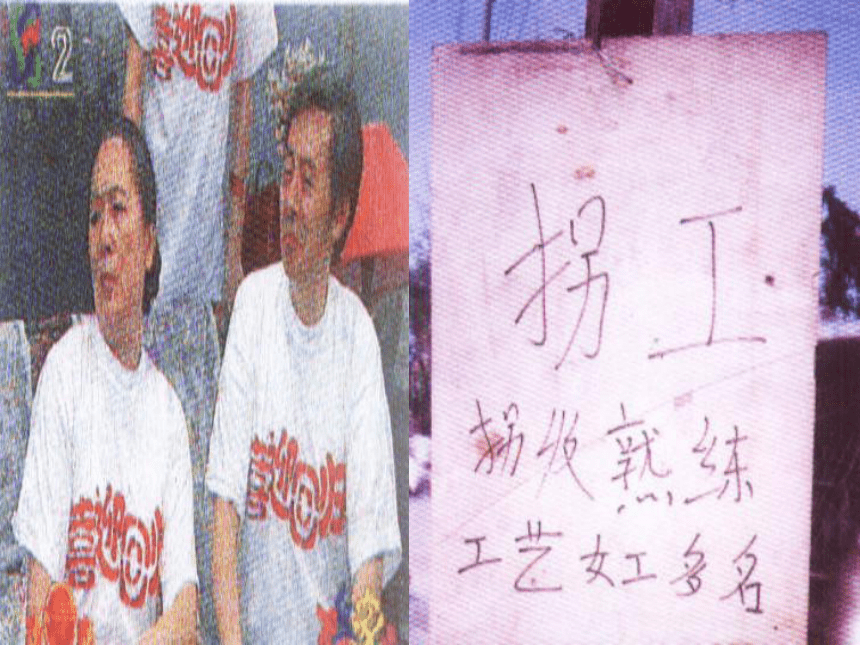 2
喜迎回
喜迎回归
喜迎回归
拐工
拐收熟练
工艺女工多名